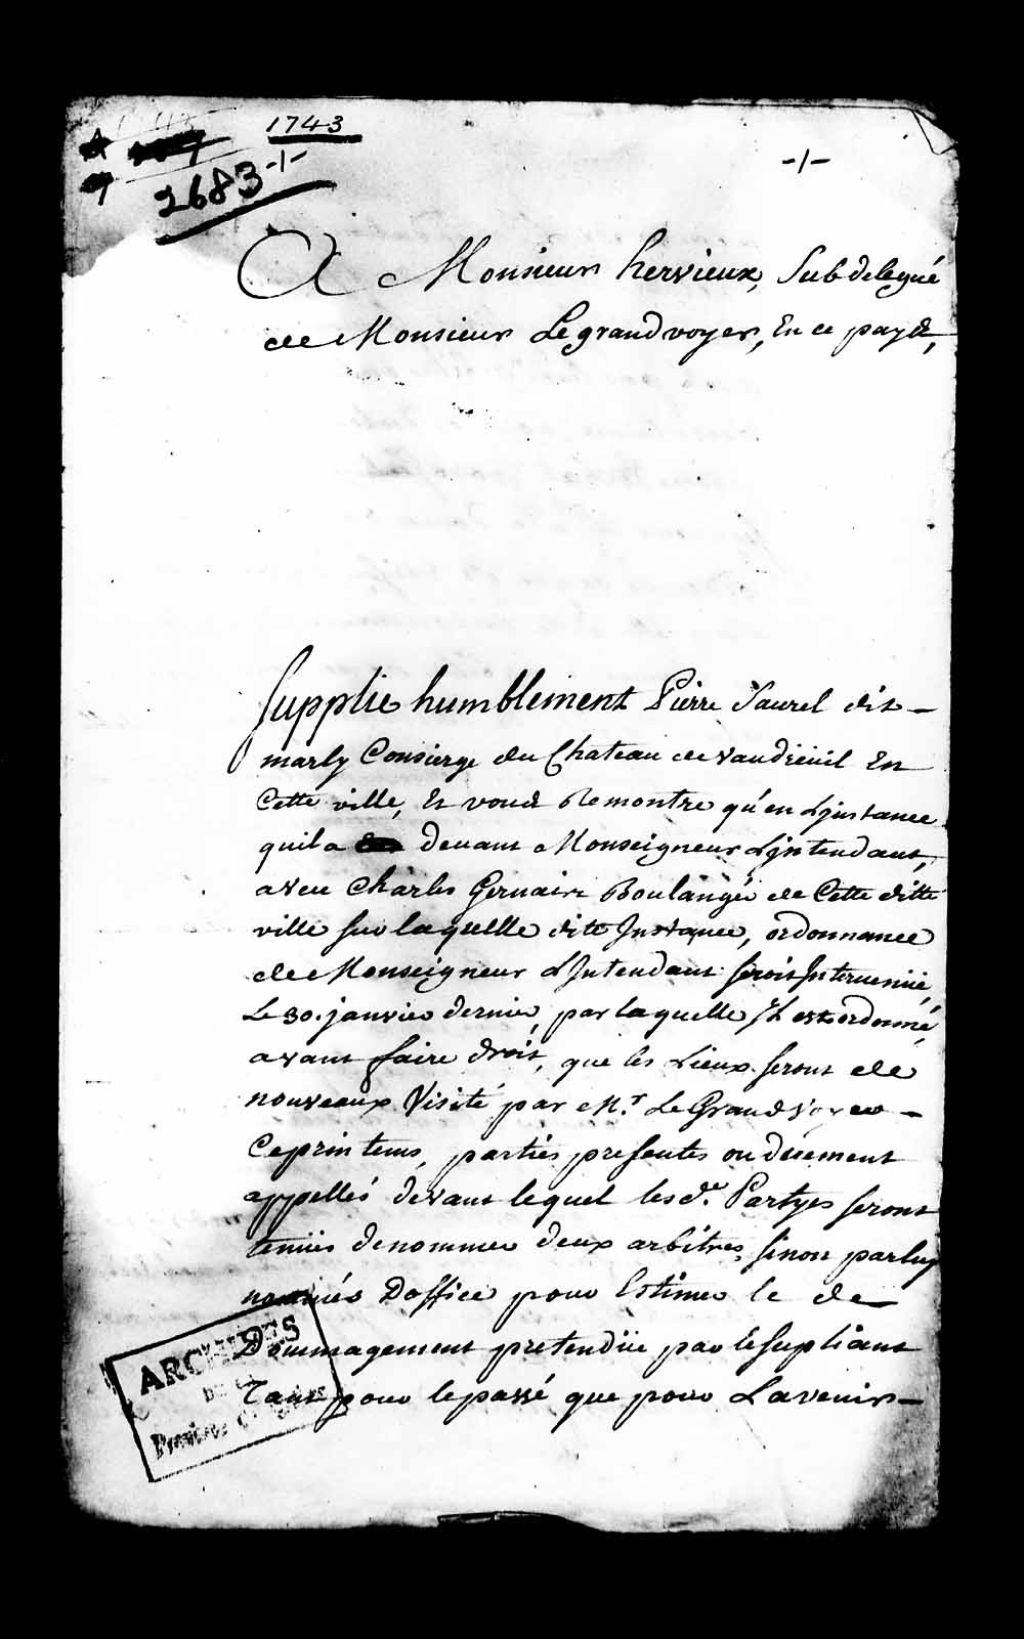 1743
2683 -/-
-/-
A Monsieur hervieux, Subdelegué
de Monsieur Le grand voyer, En ce pays,
Supplie humblement Pierre Saurel dit –
marly Consierge du Chateau de vaudreüil En
Cette ville, Et vous Remontre qu'en Linstance
quila devant Monseigneur Lintendant,
avec Charles Gervaise Boulangé de Cette ditte
ville sur laquelle dite Instance, ordonnance
de Monseigneur LIntendant seroit Intervenüe
Le 30. janvier dernier, par laquelle Il est ordonné,
avant faire droit, que les Lieux seront de
nouveaux Visité par Mr. Le Grand Voyer –
Ceprintems, parties presentes ou duement
appellés devant lequel lesdes. Partyes seront
tenües denommer deux arbitres, sinon par luy
nommés Doffice pour Estimer le de
Dommagement pretendüe par lesupliant
Tant pour lepassé que pour Lavenir –
ARCHIVES
DE LA